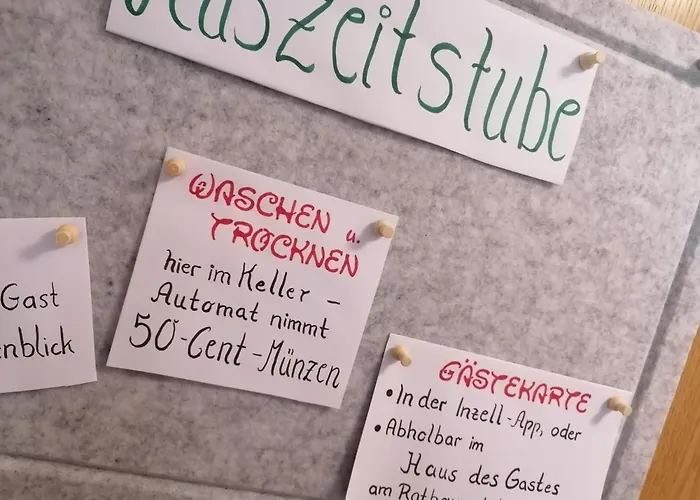 Gast
WASCHEN u.
TROCKNEN
hier im Keller –
Automat nimmt
50-Cent-Münzen
GÄSTEKARTE
• In der Inzell-App, oder
• Abholbar im
Haus des Gastes
am